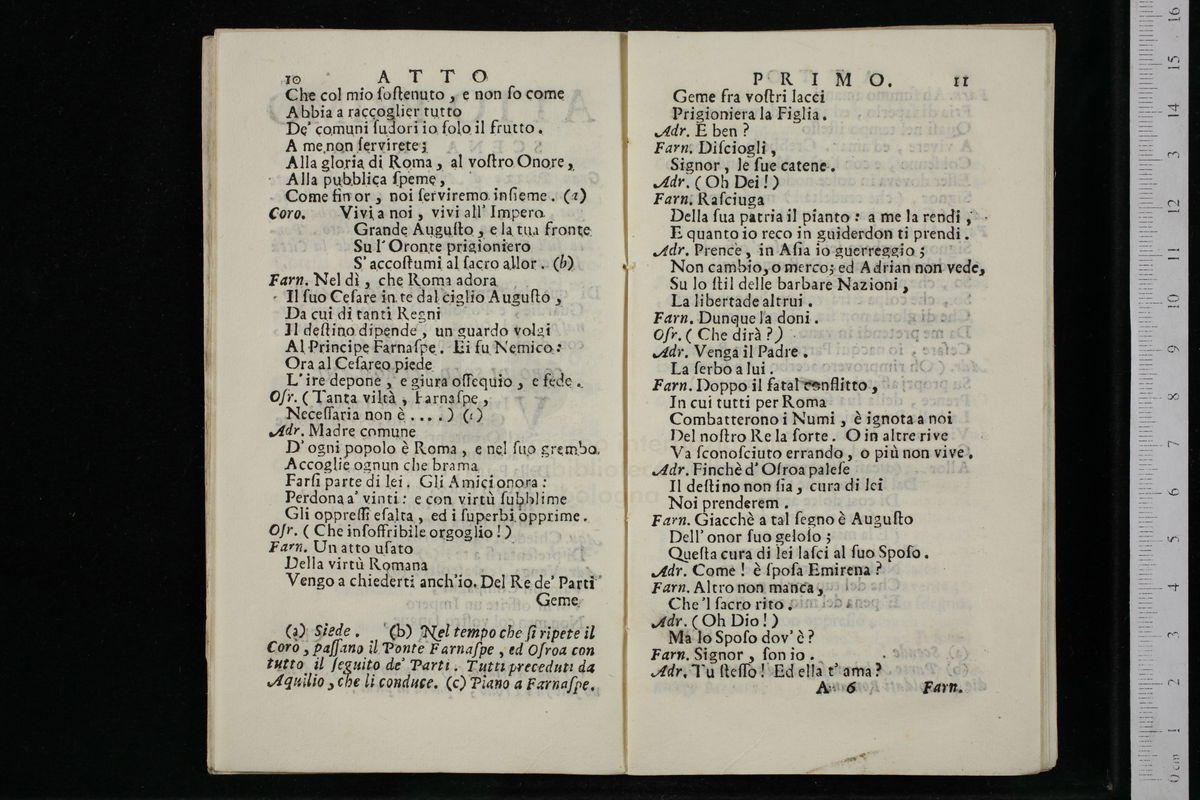 10 ATTO
Che col mio ſoſtenuto , e non ſo come
Abbia a raccoglier tutto
De' comuni ſudori io ſolo il frutto .
A me non ſervirete ;
Alla gloria di Roma , al voſtro Onore ,
Alla pubblica ſpeme ,
Come fin or , noi ſerviremo inſieme . (a)
Coro. Vivi a noi , vivi all' Impero
Grande Auguſto , e la tua fronte
Su l' Oronte prigioniero
S' accoſtumi al ſacro allor . (b)
Farn. Nel dì , che Roma adora
Il ſuo Ceſare in te dal ciglio Auguſto ,
Da cui di tanti Regni
Il deſtino dipende , un guardo volgi
Al Principe Farnaſpe . Ei fu Nemico :
Ora al Ceſareo piede
L' ire depone , e giura oſſequio , e fede .
Oſr. ( Tanta viltà , Farnaſpe ,
Neceſſaria non è . . . . ) (c)
Adr. Madre comune
D' ogni popolo è Roma , e nel ſuo grembo
Accoglie ognun che brama
Farſi parte di lei . Gli Amici onora :
Perdona a' vinti : e con virtù ſubblime
Gli oppreſſi eſalta , ed i ſuperbi opprime .
Oſr. ( Che inſoffribile orgoglio ! )
Farn. Un atto uſato
Della virtù Romana
Vengo a chiederti anch'io. Del Re de' Parti
Geme
(a) Siede . (b) Nel tempo che ſi ripete il
Coro , paſſano il Ponte Farnaſpe , ed Oſroa con
tutto il ſeguito de' Parti . Tutti preceduti da
Aquilio , che li conduce. (c) Piano a Farnaſpe.
PRIMO. 11
Geme fra voſtri lacci
Prigioniera la Figlia .
Adr. E ben ?
Farn. Diſciogli ,
Signor , le ſue catene .
Adr. ( Oh Dei ! )
Farn. Raſciuga
Della ſua patria il pianto : a me la rendi ,
E quanto io reco in guiderdon ti prendi .
Adr. Prence , in Aſia io guerreggio ;
Non cambio, o merco; ed Adrian non vede,
Su lo ſtil delle barbare Nazioni ,
La libertade altrui .
Farn. Dunque la doni .
Oſr. ( Che dirà ? )
Adr. Venga il Padre .
La ſerbo a lui .
Farn. Doppo il fatal conflitto ,
In cui tutti per Roma
Combatterono i Numi , è ignota a noi
Del noſtro Re la ſorte . O in altre rive
Va ſconoſciuto errando , o più non vive .
Adr. Finchè d' Oſroa paleſe
Il deſtino non ſia , cura di lei
Noi prenderem .
Farn. Giacchè a tal ſegno è Auguſto
Dell' onor ſuo geloſo ;
Queſta cura di lei laſci al ſuo Spoſo .
Adr. Come ! è ſpoſa Emirena ?
Farn. Altro non manca ,
Che 'l ſacro rito .
Adr. ( Oh Dio ! )
Ma lo Spoſo dov' è ?
Farn. Signor , ſon io .
Adr. Tu ſteſſo ! Ed ella t' ama ?
A 6 Farn.